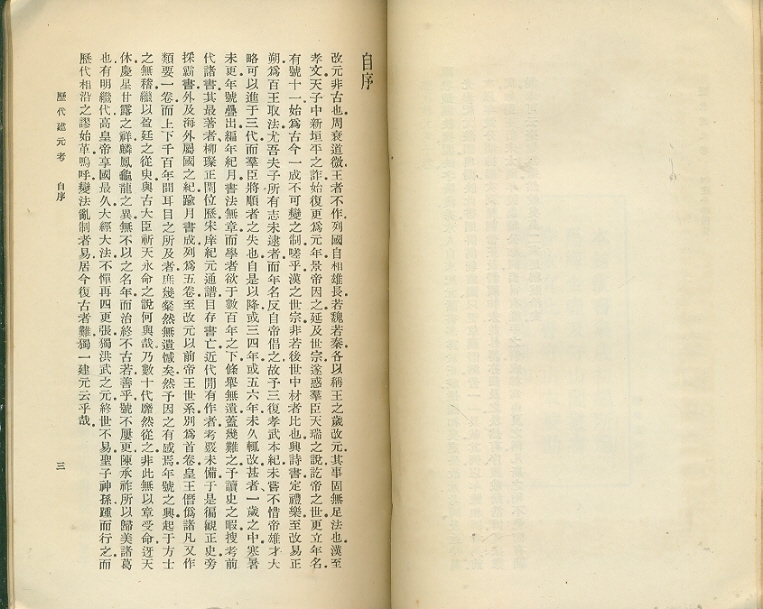 自序
改元非古也周衰道微王者不作列國自相雄長若魏若秦各以稱王之歲改元其事固無足法也漢至
孝文天子中新垣平之詐始復更爲元年景帝因之延及世宗遂惑羣臣天瑞之說訖帝之世更立年名
有號十一始爲古今一成不可變之制嗟乎漢之世宗非若後世中材者比也興詩書定禮樂至改易正
朔爲百王取法尤吾夫子所有志未逮者而年名反自帝倡之故予三復孝武本紀未嘗不惜帝雄才大
略可以進于三代而羣臣將順者之失也自是以降或三四年或五六年未久輒改甚者一歲之中寒暑
未更年號疊出編年紀月書法無章而學者欲于數百年之下條舉無遺蓋幾難之予讀史之暇搜考前
代諸書其最著者柳璨正閏位歷宋庠紀元通譜目存書亡近代間有作者考覈未備于是徧觀正史旁
採霸書外及海外屬國之紀踰月書成列爲五卷至改元以前帝王世系別爲首卷皇王僭僞諸凡又作
類要一卷而上下千百年間耳目之所及者庶幾粲然無遺憾矣然予因之有感焉年號之興起于方士
之無稽繼以盈廷之從臾與古大臣祈天永命之說何與哉乃數十代靡然從之非此無以章受命迓天
休慶星甘露之祥麟鳳龜龍之異無不以之名年而治終不古若善乎號不屢更陳承祚所以歸美諸葛
也有明繼代高皇帝享國最久大經大法不憚再四更張獨洪武之元終世不易聖子神孫踵而行之而
歷代相沿之謬始革嗚呼變法亂制者易居今復古者難獨一建元云乎哉
歷代建元考 自序 三